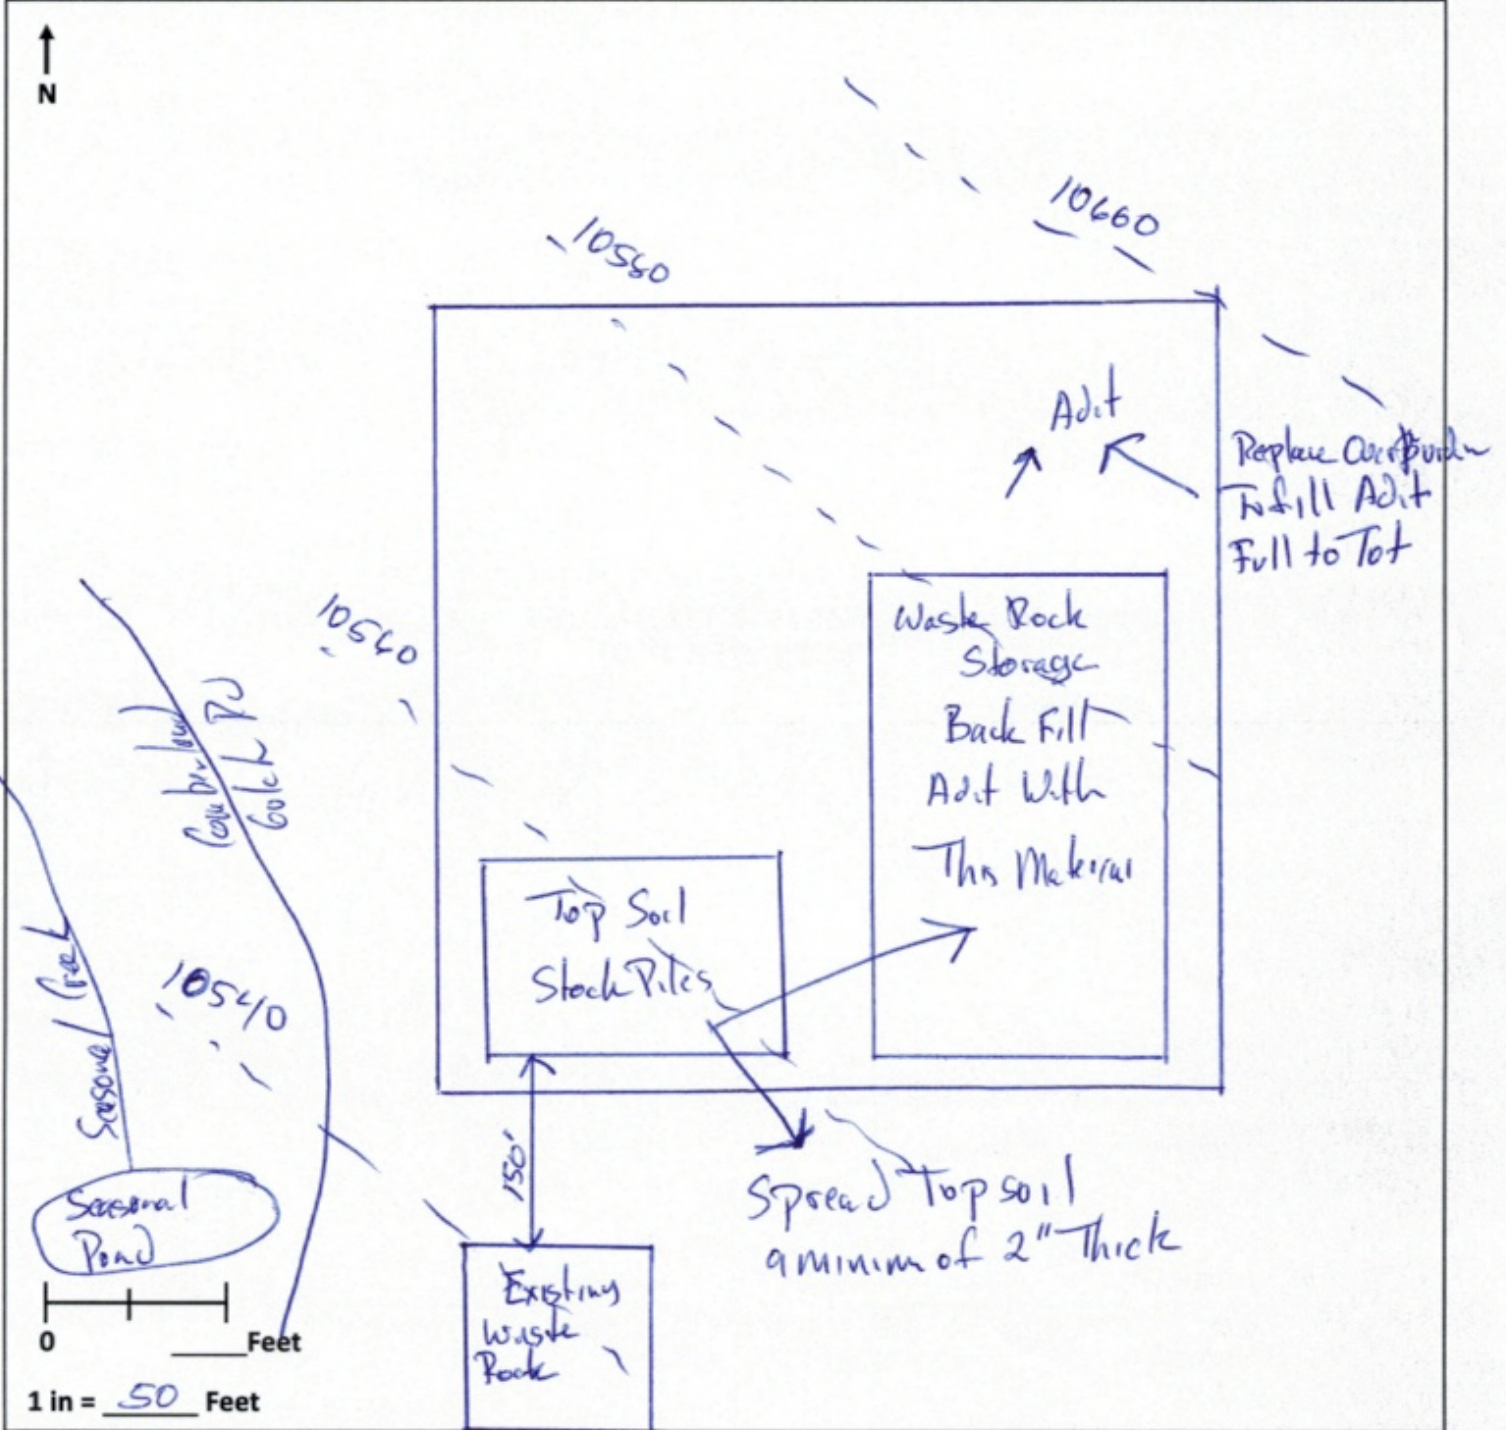 N
10660
10580
Adit
Replace Overburden
To fill Adit
Full to Tot
Waste Rock
Storage
Back Fill
Adit With
This Material
10560
Cumberland
Gulch Rd
Top Soil
Stock Piles
Seasonal Creek
10540
150'
Spread Topsoil
a minimum of 2" Thick
Seasonal
Pond
Existing
Waste
Rock
0 Feet
1 in = 50 Feet